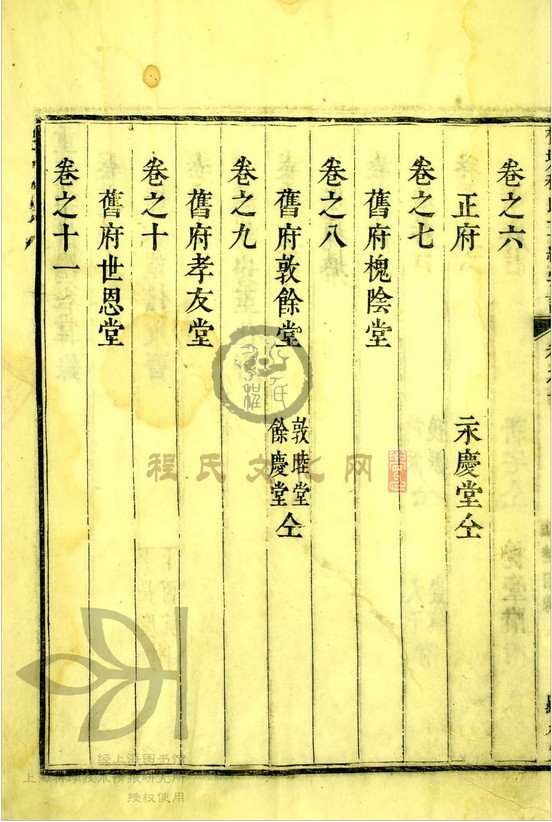 卷之六
正府 永慶堂仝
卷之七
舊府槐陰堂
卷之八
舊府敦餘堂 敦睦堂 餘慶堂 仝
卷之九
舊府孝友堂
卷之十
舊府世恩堂
卷之十一
程氏文化网
经上海图书馆
授权使用